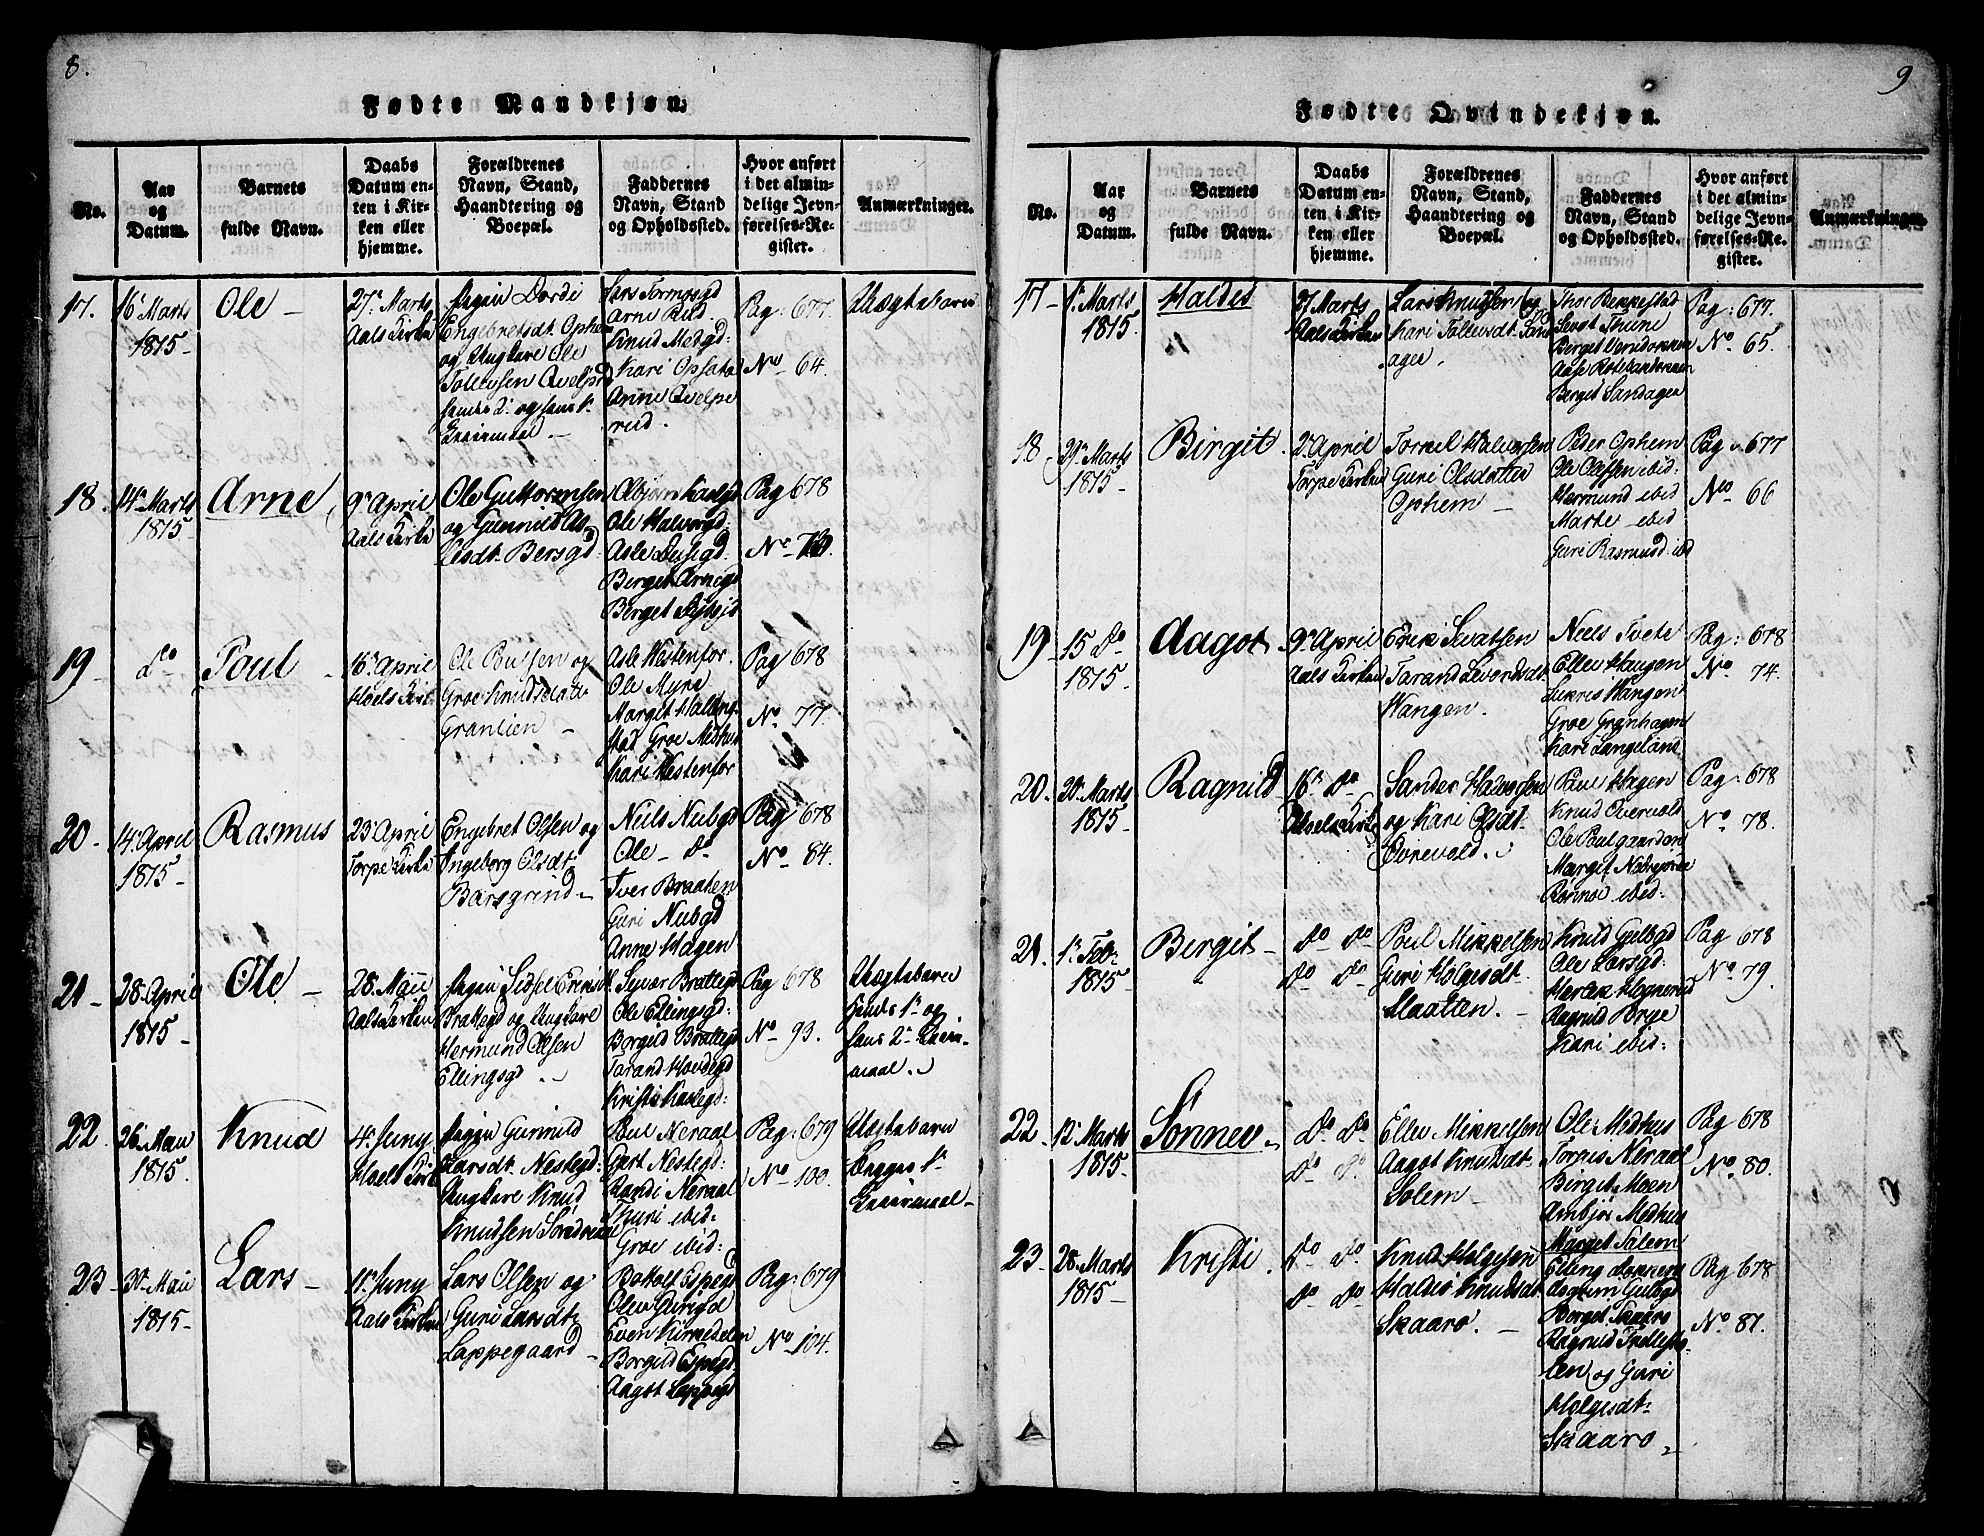 8.
Fødte Mandkjøn.
No.
Aar
og
Datum.
Barnets
fulde Navn.
Daabs
Datum en-
ten i Kir-
ken eller
hjemme.
Forældrenes
Navn, Stand,
Haandtering og
Boepæl.
Faddernes
Navn, Stand
og Opholdssted.
Hvor anført
i det almin-
delige Jevn-
førelses-Re-
gister.
Anmærkninger.
17.
16 Marts
1815
Ole
27 Marts
Aals Kirke
Pigen Dordi
Engebretsdt Ophem
og Ungkare Ole
Tollevsen
Lars Tormosgd
Arne Rud
Knud Medgd:
Kari Opsata
Anne Qvelpe
rud.
Pag: 677.
No 64.
Uægtebarn
18.
14 Marts
1815
Arne
9 April
Aals Kirke
Ole Guttormsen
og Gunnild As-
lesdt Bersgd:
Ole Halvorgd:
Berget Arnegd
Pag 678
No
19
do
Poul
16 April
Hoels Kirk
Ole Poulsen og
Groe Knudsdatter
Grønlien
Asle Vestenfor.
Ole Myre
Margit Halling-
stad Groe Medhus
Kari Vestenfor
Pag 678
No. 77.
20
14 April
1815
Rasmus
23 April
Torpe Kirke
Engebret Olsen og
Ingeborg Olsdt
Barsgrind
Neils Nubgd
Ole do
Iver Braaten
Guri Nubgd
Anne Hagen
Pag 678
No 84.
21
28 April
1815
Ole
28 Maii
Aals Kirken
Pigen Sidsel
Brattegd og Ungkare
Hermund Olsen
Ellingsgd
Syver Brattegd
Ole Ellingsgd:
Borgild Brattegd
Tarand Hovdegd
Kristi
Pag 678
No 93.
Uægtebarn
hendes 1 og
hans 2
maal.
22.
26 Maii
1815.
Knud
4 Juny
Hoels Kirk
Pigen Gunnild
Larsdt. Nestegd:
Ungkare Knud
Knudsen
Poul Neraal
Gart Nestegd:
Randi Neraal
Thuri ibid:
Groe ibid:
Pag: 679
No 100.
Uægtebarn
Begges 1
23
30 Maii
1815
Lars
11 Juny
Aals Kirken
Lars Olsen og
Guri Larsdt
Lappegaard
Bottolf Espegd
Olev Gurigd
Even Kirkedelen
Borgild Espegd
Aagot Lappegd
Pag: 679
No 104.
9
Fødte Qvindekjøn.
No.
Aar
og
Datum.
Barnets
fulde Navn.
Daabs
Datum en-
ten i Kir-
ken eller
hjemme.
Forældrenes
Navn, Stand,
Haandtering og
Boepæl.
Faddernes
Navn, Stand
og Opholdssted.
Hvor anført
i det almin-
delige Jevn-
førelses-Re-
gister.
Anmærkninger.
17
1 Marts
1815
Haldis
27 Marts
Aals Kirken
Lars Knudsen og
Kari Tollevsdt Sand
ager.
Thor Bekkestad
Berget Sandager
Pag: 677.
No. 65.
18
29 Marts
1815
Birgit
2 April
Torpe Kirken
Tornel Halvorsen
Guri Olsdatter
Ophem
Peder Ophem
Ole Olsen ibid:
Hermund ibid
Marte ibid
Guri Rasmusd ibd
Pag 677
No 66
19
15 do
1815.
Aagot
9 April
Aals Kirken
Erik
Tarand
Vangen.
Neels Tvete
Ellev Haugen
Vangen
Groe Grønhagen
Kari Langeland
Pag: 678
No. 74.
20.
20 Marts
1815
Ragnild
16 do
Sander Halvorsen
og Kari Olsdt
Øvrevold.
Poul Hagen
Knud Overvold
Ole Poulgaarden
Margit
Rønnoi ibid:
Pag: 678
No. 78.
21.
1 Feb:
1815
Bergit
do do
do do
Poul Mikkelsen
Guri Holgesdt
Slaatten.
Knud Gulbgd
Ole Larsgd:
Aagnild
Kari ibid:
Pag 678
No. 79.
22.
12 Marts
1815
Sønnev
do do
do do.
Ellev Mikkelsen
Aagot Knudsdt
Solem
Ole Medhus
Tornes Neraal
Birgit Moen
Ambjør Medhus
Marget Solem
Pag 678
No. 80.
23.
28 Marts
1815
Kristi.
do do.
do do
Knud Holgesen
Haldis Knudsdt
Skaaro.
Elling
Berget Skaaro
Ragnild
len og Guri
Holgesdt
Skaaro
Pag 678
No. 81.